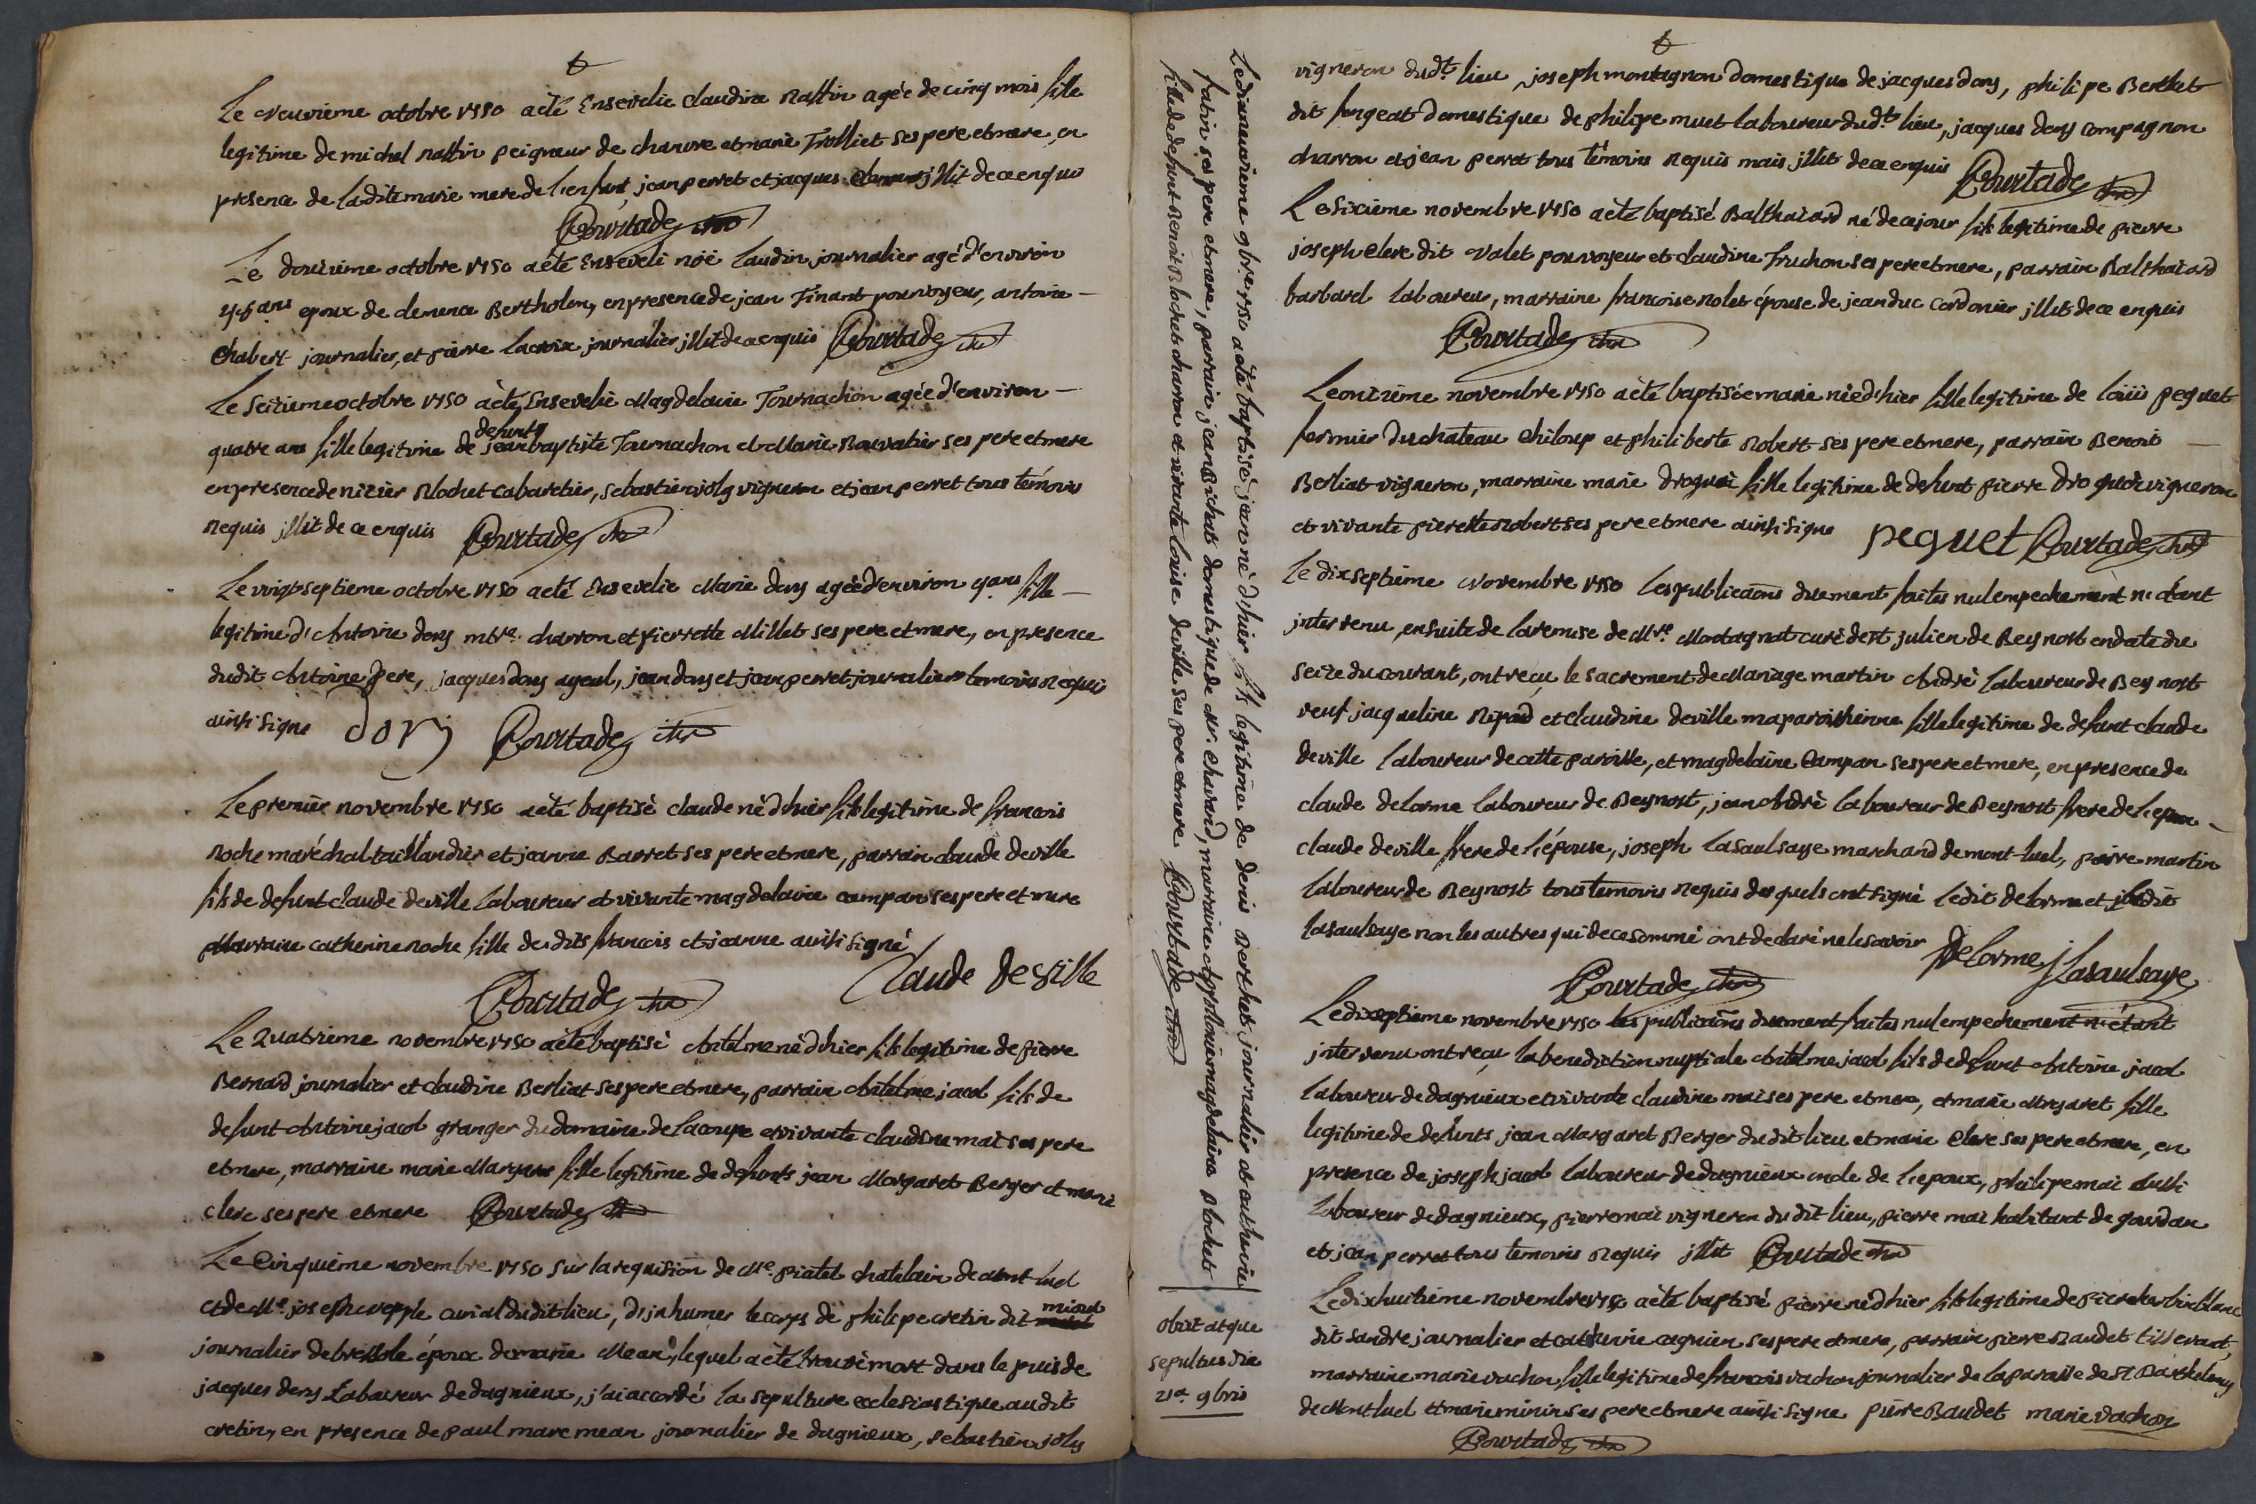 Le neuvieme octobre 1750 a été Ensevelie Claudine Raffin agée de cinq mois fille
legitime de michel raffin peigneur de chanvre et marie Trolliet ses pere et mere, en
presence de ladite marie mere de l'enfant jean perret et jacques illit. de ce enquis
Courtade
Le douzieme octobre 1750 a été Enseveli noë Laudin journalier agé d'environ
ans epoux de clemence Bertholon, en presence de jean Tinant pourvoyeur, antoine
Chabert journalier, et pierre Lacroix journalier illit de ce enquis Courtade
Le Seizieme octobre 1750 a été Ensevelie Magdelaine Tournachon agée d'environ
quatre ans fille legitime de defunt jean baptiste Tournachon et Marie ses pere et mere
en presence de nizier Rlochet Cabaretier, sebastien joly vigneron et jean perret tous témoins
requis illit de ce enquis Courtade
Le vingt septieme octobre 1750 a été Ensevelie Marie dory agée d'environ ans fille
legitime d'Antoine dory mtre. charron et pierrette Millet ses pere et mere, en presence
dudit Antoine Pere, jacques dory ayeul, jean dory et jean perret journaliers temoins requis
ainsi signe dory Courtade
Le premier novembre 1750 a été baptisé claude né d'hier fils legitime de francois
roche maréchal taillandier et jeanne Barret ses pere et mere, parrain claude deville
fils de defunt claude deville Laboureur et vivante magdelaine campan ses pere et mere
Marraine catherine roche fille des dits francois et jeanne ainsi signé
Claude Deville
Courtade
Le Quatrieme novembre 1750 a été baptisé Antelme né d'hier fils legitime de pierre
Bernard journalier et claudine Berliat ses pere et mere, parrain Antelme jacob fils de
defunt Antoine jacob granger du domaine de Lacoupe et vivante claudine mai ses pere
et mere, marraine marie Margaret fille legitime de defunts jean Margaret Berger et marie
clere ses pere et mere Courtade
Le Cinquieme novembre 1750 sur la requisition de Mre. piatel chatelain de mont-luel
et de Mr. joseph curial dudit lieu, d'inhumer le corps de philipe cretin dit
journalier de bressole époux de marie Mean, lequel a été trouvé mort dans le puis de
jacques dory Laboureur de dagnieux, j'ai accordé la sepulture ecclesiastique audit
cretin, en presence de paul marc mean journalier de dagnieux, sebastien joly
Le dixneuvieme 9bre 1750 a été baptisé né d'hier fils legitime de denis Berchet journalier et catherine
fatin ses pere et mere, parrain jean Bichat domestique de Mr. Chavard, marraine Appollonie magdelaine Rlochet
fille de defunt Benoit Rlochet charron et vivante Louise deville ses pere et mere Courtade
obiit atque
sepultus die
21a. 9bris
vigneron dudt. lieu, joseph montagnon domestique de jacques dory, philipe Berthet
dit fongeat domestique de philipe muet laboureur dudt. lieu, jacques dory compagnon
charron et jean perret tous témoins requis mais illit de ce enquis Courtade
Le Sixieme novembre 1750 a été baptisé Balthazard né de ce jour fils legitime de pierre
joseph clere dit valet pourvoyeur et claudine Truchon ses pere et mere, parrain Balthazard
barbarel laboureur, marraine francoise nolet épouse de jean duc Cordonier illit de ce enquis
Courtade
Le onzieme novembre 1750 a été baptisée marie née d'hier fille legitime de Loüis peguet
fermier du chateau chiloup et philiberte Robert ses pere et mere, parrain Benoit
Berliat vigneron, marraine marie droguet fille legitime de defunt pierre droguet vigneron
et vivante pierrette robert ses pere et mere ainsi signe peguet Courtade
Le dix septieme Novembre 1750 les publications duement faites nul empechement n'etant
intervenu, ensuite de la remise de Mre. Montagnat curé de st. julien de Beynost en date du
seize du courant, ont reçu le sacrement de Mariage martin André Laboureur de Beynost
veuf jacqueline Ripaud et claudine deville ma paroissienne fille legitime de defunt claude
deville laboureur de cette paroisse, et magdelaine Campan ses pere et mere, en presence de
claude delorme laboureur de Beynost, jean André laboureur de Beynost frere de l'epoux
claude deville frere de l'épouse, joseph Lasaulsaye marchand de mont-luel, pierre martin
laboureur de Beynost tous temoins requis des quels ont signé ledit delorme et ledit
lasaulsaye non les autres qui de ce sommé ont declaré ne le savoir Delorme JLasaulsaye
Courtade
Le dixseptieme novembre 1750 les publications duement faites nul empechement n'étant
intervenu ont reçu la benediction nuptiale Antelme jacob fils de defunt Antoine jacob
laboureur de dagnieux et vivante claudine mai ses pere et mere, et marie Margaret fille
legitime de defunts jean Margaret Berger dudit lieu et marie clere ses pere et mere, en
presence de joseph jacob laboureur de dagnieux oncle de l'epoux, philipe mai aussi
Laboureur de dagnieux, pierre mai vigneron dudit lieu, pierre mai habitant de jourdan
et jean perret tous temoins requis illit Courtade
Le dixhuitieme novembre 1750 a été baptisé pierre né d'hier fils legitime de pierre blanc
dit sandre journalier et catherine cagnin ses pere et mere, parrain pierre Baudet tisserant,
marraine marie vachon fille legitime de francois vachon journalier de la paroisse de st Barthelemy
de Montluel et marie minin ses pere et mere ainsi signe pierre Baudet marie vachon
Courtade